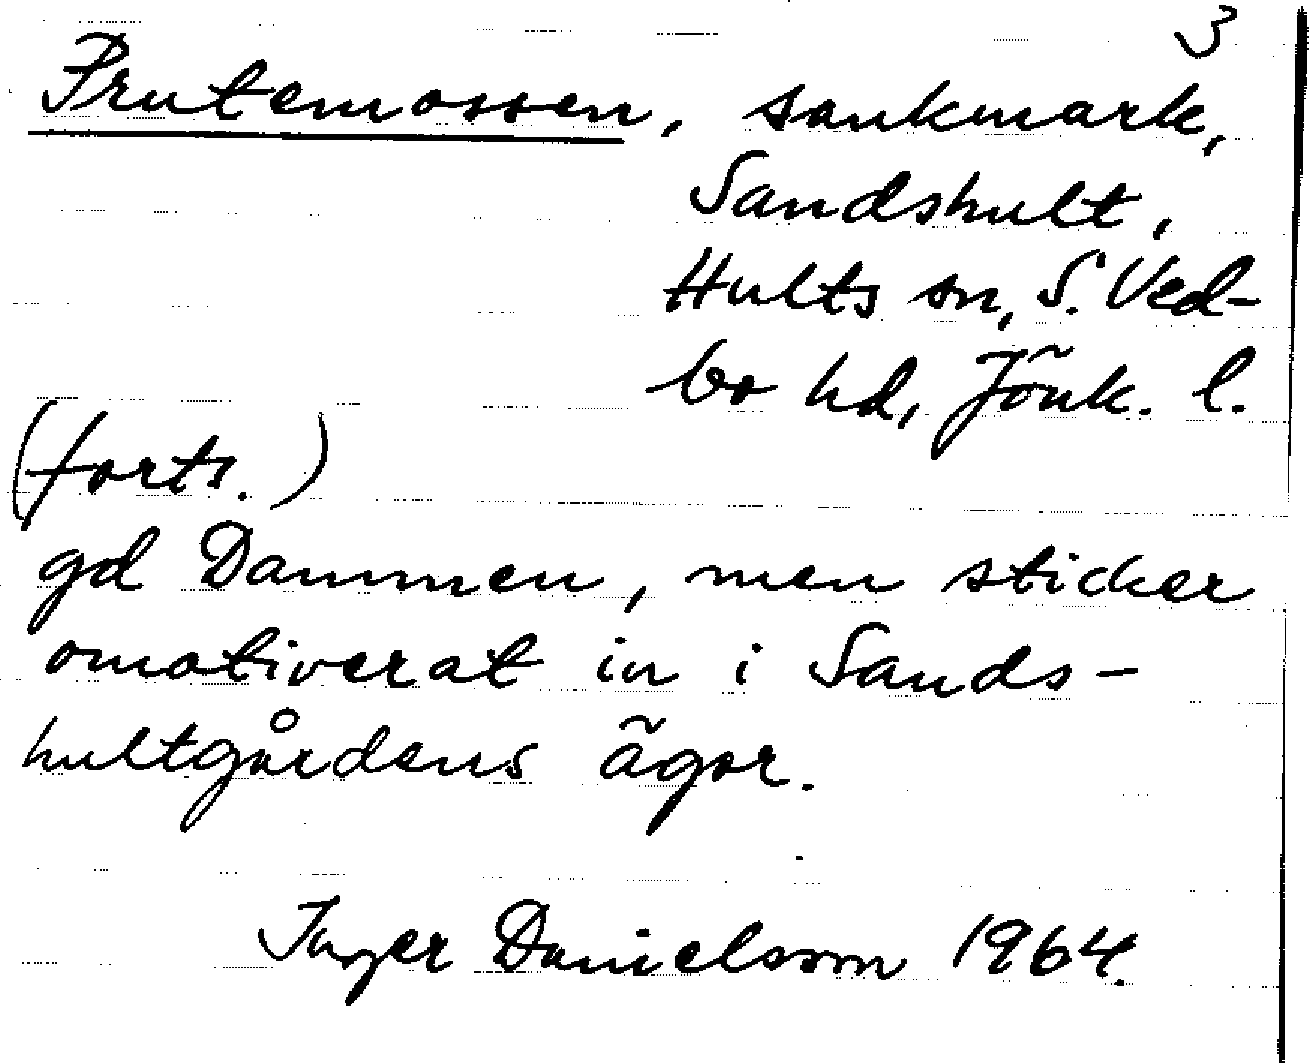 3
Prutemossen, sankmark,
Sandshult,
Hults sn, S. Ved-
bo hd, Jönk. l.
(forts.)
gd Dammen, men sticker
omotiverat in i Sands-
hultgårdens ägor.
Inger Danielsson 1964.